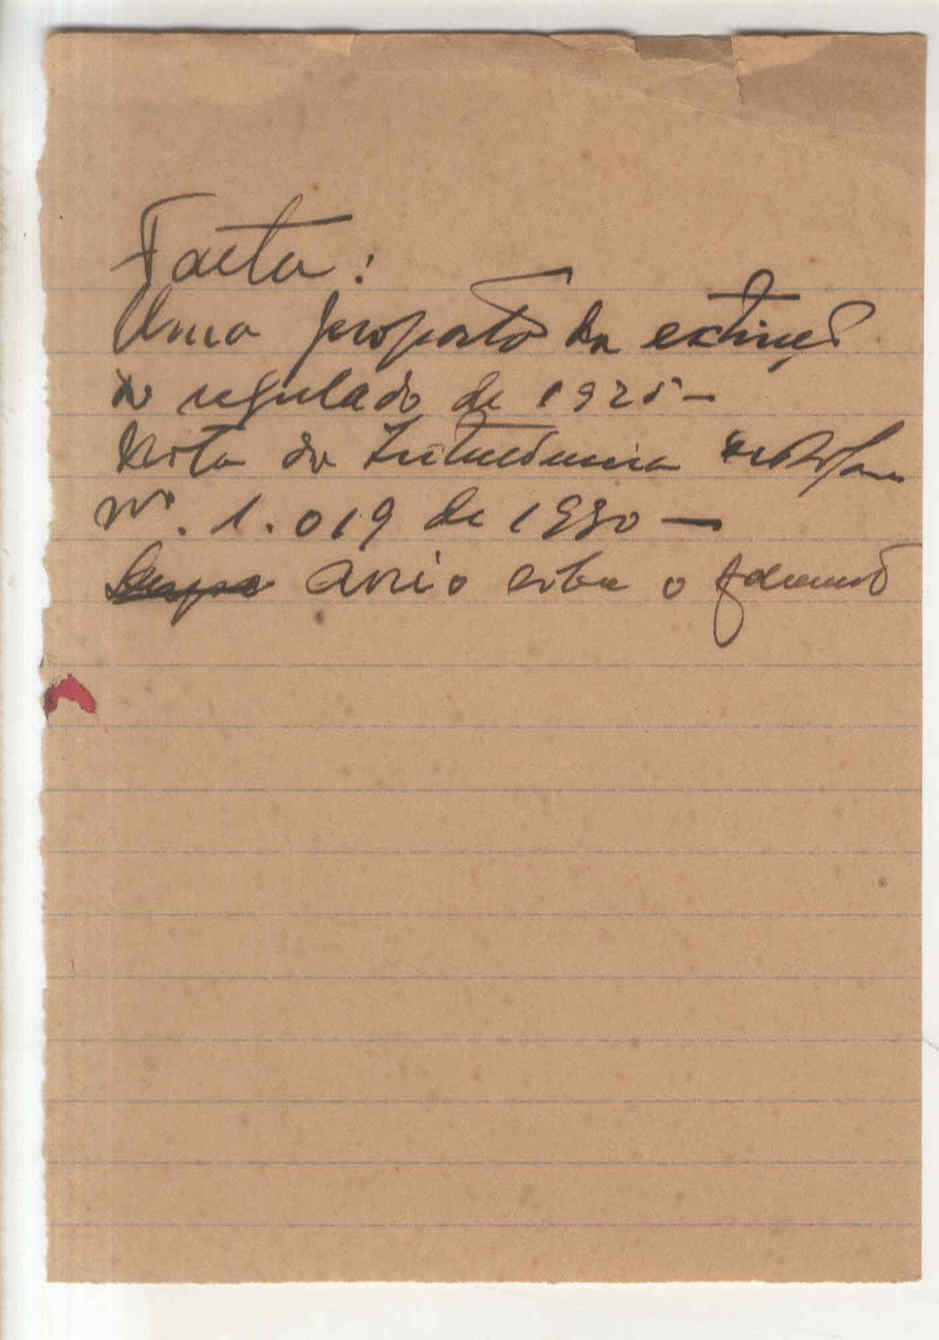 Falta:
Uma proposta da extinçã
do regulado de 1925 -
Nota da Intendencia
Nº. 1.019 de 1930 —
Aviso sobre o